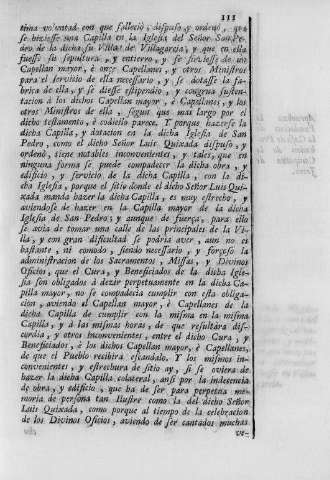 111
tima voluntad con que falleciò, dispuso, y ordenò, que
se hiciesse una Capilla en la Iglesia del Señor San Pe-
dro de la dicha su Villa de Villagarcia, y que en ella
fuesse su sepultura, y entierro, y se sirviesse de un
Capellan mayor, è once Capellanes, y otros Ministros
para el servicio de ella necessario, y se dotasse la fa-
brica de ella, y se diesse estipendio, y congrua susten-
tacion à los dichos Capellan mayor, è Capellanes, y los
otros Ministros de ella, segun que mas largo por el
dicho testamento, è codicilo parece. Y porque hacerse la
dicha Capilla, y dotacion en la dicha Iglesia de San
Pedro, como el dicho Señor Luis Quixada dispuso, y
ordenò, tiene notables inconvenientes, y tales, que en
ninguna forma se puede compadecer la dicha obra, y
edificio, y servicio de la dicha Capilla, con la di-
cha Iglesia, porque el sitio donde el dicho Señor Luis Qui-
xada manda hacer la dicha Capilla, es muy estrecho, y
aviendose de hacer en la Capilla mayor de la dicha
Iglesia de San Pedro; y aunque de fuerça, para ello
se avia de tomar una calle de las principales de la Vi-
lla, y con gran dificultad se podria aver, aun no es
bastante, nì comodo, siendo necessario, y forçoso la
administracion de los Sacramentos, Missas, y Divinos
Oficios, que el Cura, y Beneficiados de la dicha Igle-
sia son obligados à decir perpetuamente en la dicha Ca-
pilla mayor, no se compadecia cumplir con esta obliga-
cion, aviendo el Capellan mayor, è Capellanes de la
dicha Capilla de cumplir con la misma en la misma
Capilla, y à las mismas horas, de que resultarà dis-
cordia, y otros inconvenientes, entre el dicho Cura, y
Beneficiados, è los dichos Capellan mayor, è Capellanes,
de que el Pueblo recibirà escandalo. Y los mismos in-
convenientes, y estrechura de sitio ay, si se oviera de
hacer la dicha Capilla colateral, ansi por la indecencia
de obra, y edificio, que ha de ser para perpetua me-
moria de persona tan Ilustre como la del dicho Señor
Luis Quixada, como porque al tiempo de la celebracion
de los Divinos Oficios, aviendo de ser cantados muchas
ve-